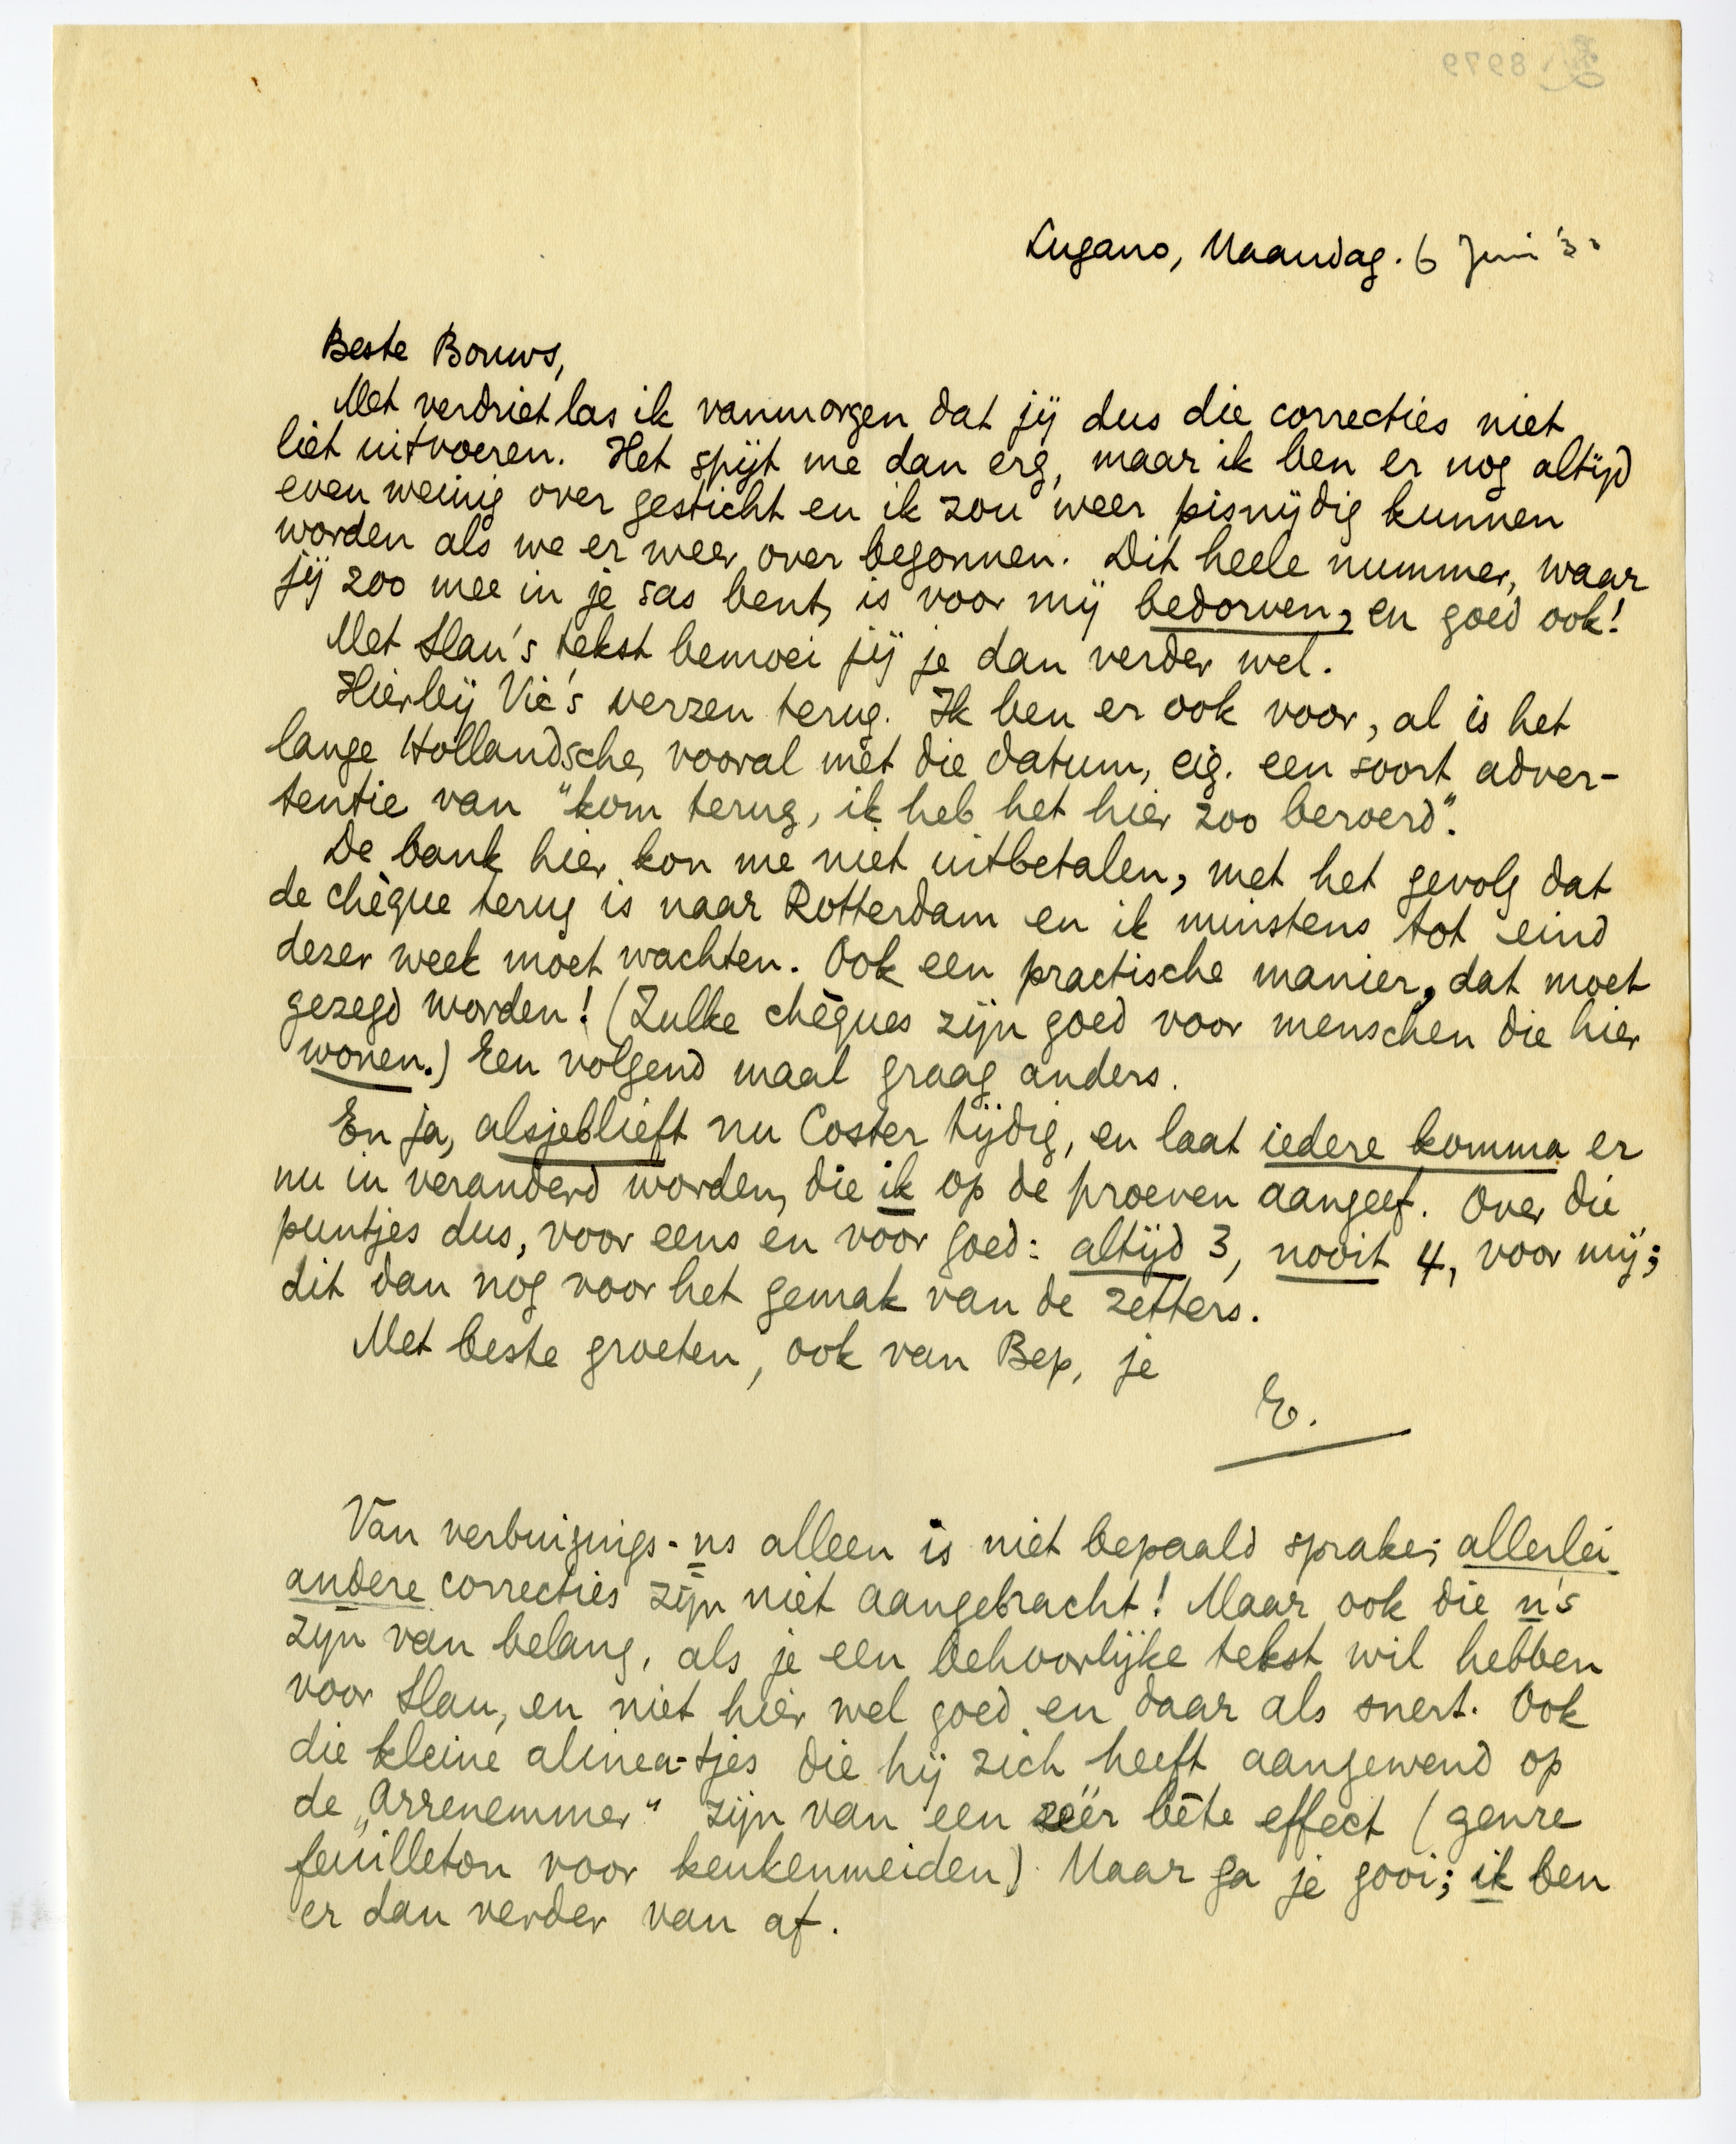 Lugano, Maandag. 6 Juni '3
Beste Bouws,
Met verdriet las ik vanmorgen dat jij dus die correcties niet
liet uitvoeren. Het spijt me dan erg, maar ik ben er nog altijd
even weinig over gesticht en ik zou weer pisnijdig kunnen
worden als we er weer over begonnen. Dit heele nummer, waar
jij zoo mee in je sas bent, is voor mij bedorven, en goed ook!
Met Slau's tekst bemoei jij je dan verder wel.
Hierbij Vic's verzen terug. Ik ben er ook voor, al is het
lange Hollandsche, vooral mèt die datum, eig. een soort adver-
tentie van "kom terug, ik heb het hier zoo beroerd".
De bank hier kon me niet uitbetalen, met het gevolg dat
de chèque terug is naar Rotterdam en ik minstens tot eind
dezer week moet wachten. Ook een practische manier, dat moet
gezegd worden! (Zulke chèques zijn goed voor menschen die hier
wonen.) Een volgend maal graag anders.
En ja, alsjeblieft nu Coster tijdig, en laat iedere komma er
nu in veranderd worden, die ik op de proeven aangeef. Over die
puntjes dus, voor eens en voor goed: altijd 3, nooit 4, voor mij;
dit dan nog voor het gemak van de zetters.
Met beste groeten, ook van Bep, je
E.
Van verbuigings-ns alleen is niet bepaald sprake; allerlei
andere correcties zijn niet aangebracht! Maar ook die n's
zijn van belang, als je een behoorlijke tekst wil hebben
voor Slau, en niet hier wel goed en daar als snert. Ook
die kleine alinea-tjes die hij zich heeft aangewend op
de „Arrenemmer" zijn van een zéér bête effect (genre
feuilleton voor keukenmeiden). Maar ga je gooi; ik ben
er dan verder van af.
8979